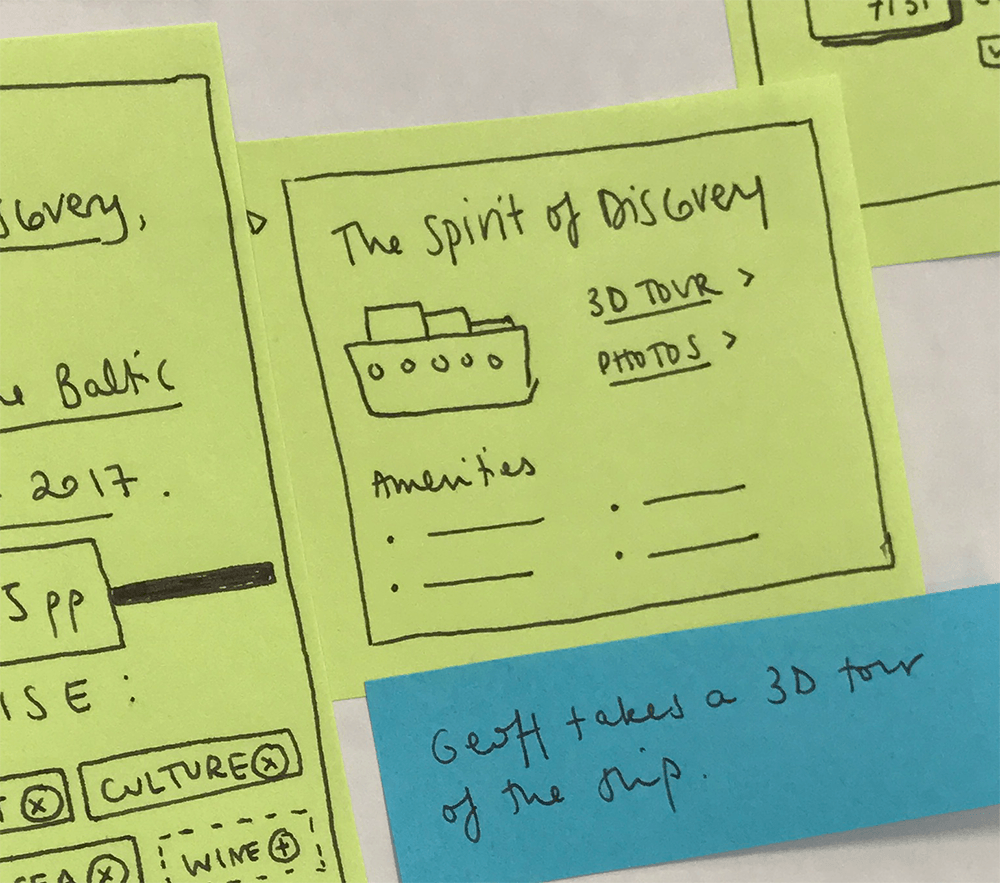 The Spirit of Discovery
3D TOUR >
PHOTOS >
Amenities
Geoff takes a 3D tour
of the ship.
Baltic
2017.
5 pp
ISE:
CULTURE
WINE